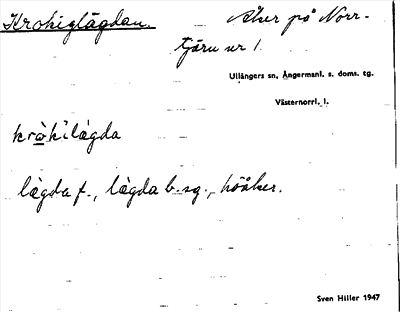 Krokiglägdan. Åker på Norr-
tjärn nr 1.
Ullångers sn, Ångermanl. s. doms. tg.
Västernorrl. l.
kròkilägda
lägda f., lägda b. sg., höåker.
Sven Hiller 1947